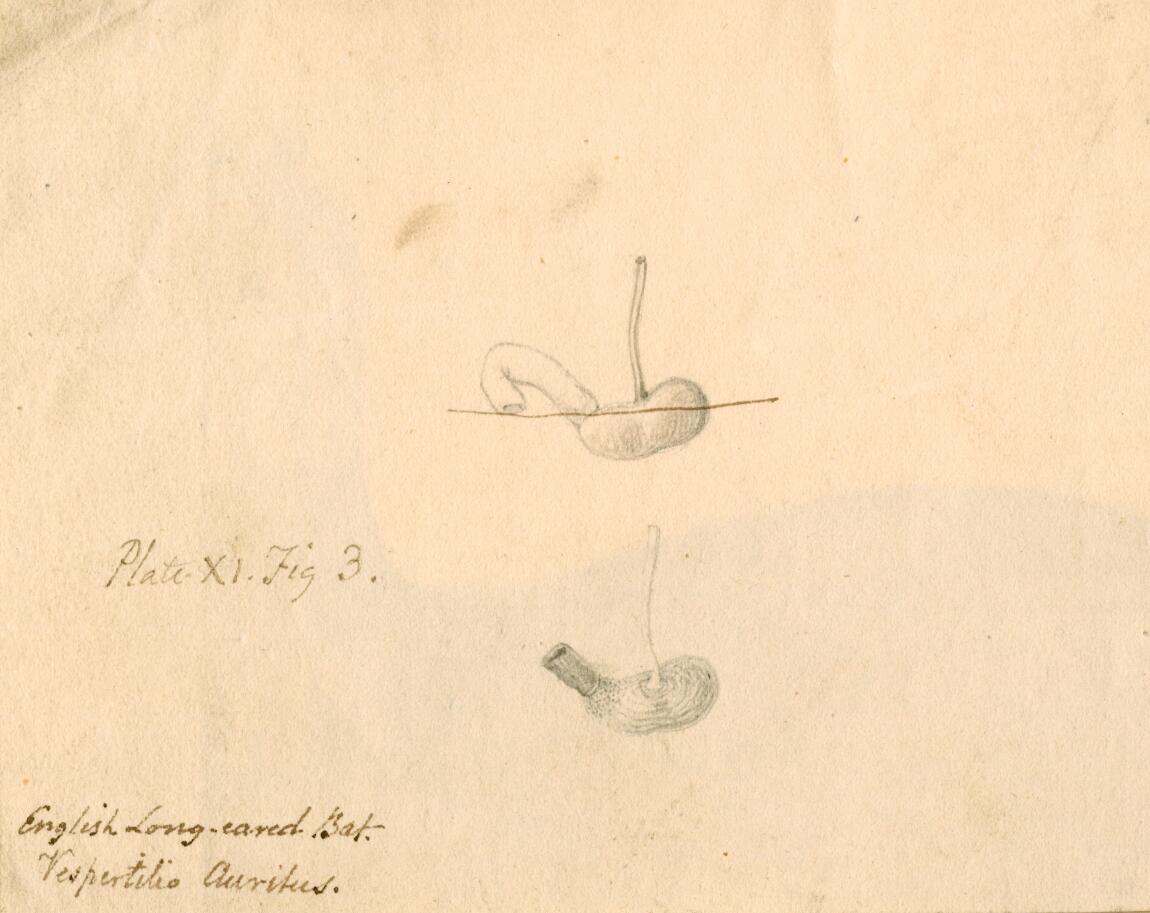 Plate XI. Fig 3.
English Long-eared Bat.
Vespertilio Auritus.